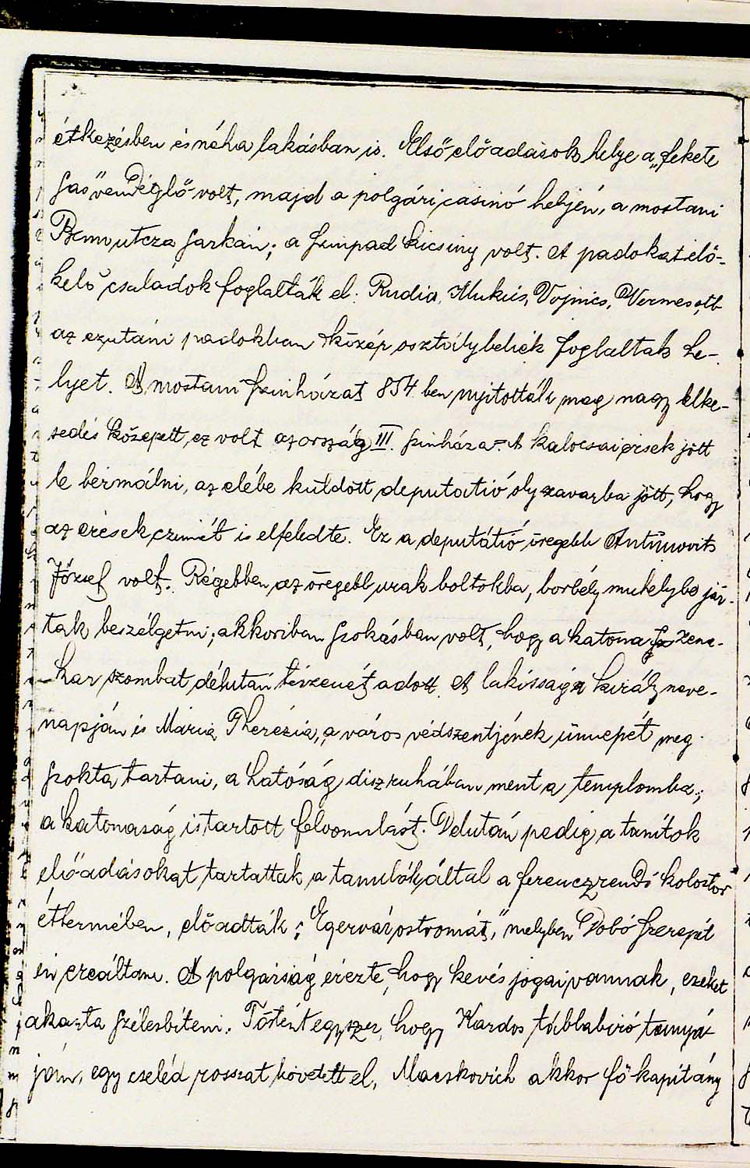 étkezésben és néha lakásban is. Első előadások helye a „fekete
sas" vendéglő volt, majd a polgári casinó helyén, a mostani
Bem utcza sarkán; a szinpad kicsiny volt. A padokat elő-
kelő családok foglalták el: Rudia, Mukics, Vojnics, Vermes, stb
az ezutáni padokban közép osztálybeliek foglaltak he-
lyet. A mostani szinházat 854 ben nyitották meg nagy lelke-
sedés közepett, ez volt az ország III. szinháza. A kalocsai érsek jött
le bérmálni, az elébe küldött deputatió oly zavarba jött, hogy
az érsek czimét is elfeledte. Ez a deputátió öregebb Antunovits
József volt. Régebben az öregebb urak boltokba, borbély muhelybe jár-
tak beszélgetni; akkoriban szokásban volt, hogy a katona zene-
kar szombat délután térzenét adott. A lakosság a király neve-
napján és Mária Therézia, a város védszentjének ünnepét meg-
szokta tartani, a hatóság diszruhában ment a templomba;
a katonaság is tartott felvonulást. Délután pedig a tanitók
előadásokat tartattak a tanulók által a ferenczrendi kolostor
éttermében, előadták: „Egervár ostromát," melyben Dobó szerepét
én creáltam. A polgárság érezte, hogy kevés jogai vannak, ezeket
akarta szélesbiteni. Történt egyszer, hogy Kardos táblabiró tanyá-
ján, egy cseléd rosszat követett el, Macskovich akkor főkapitány